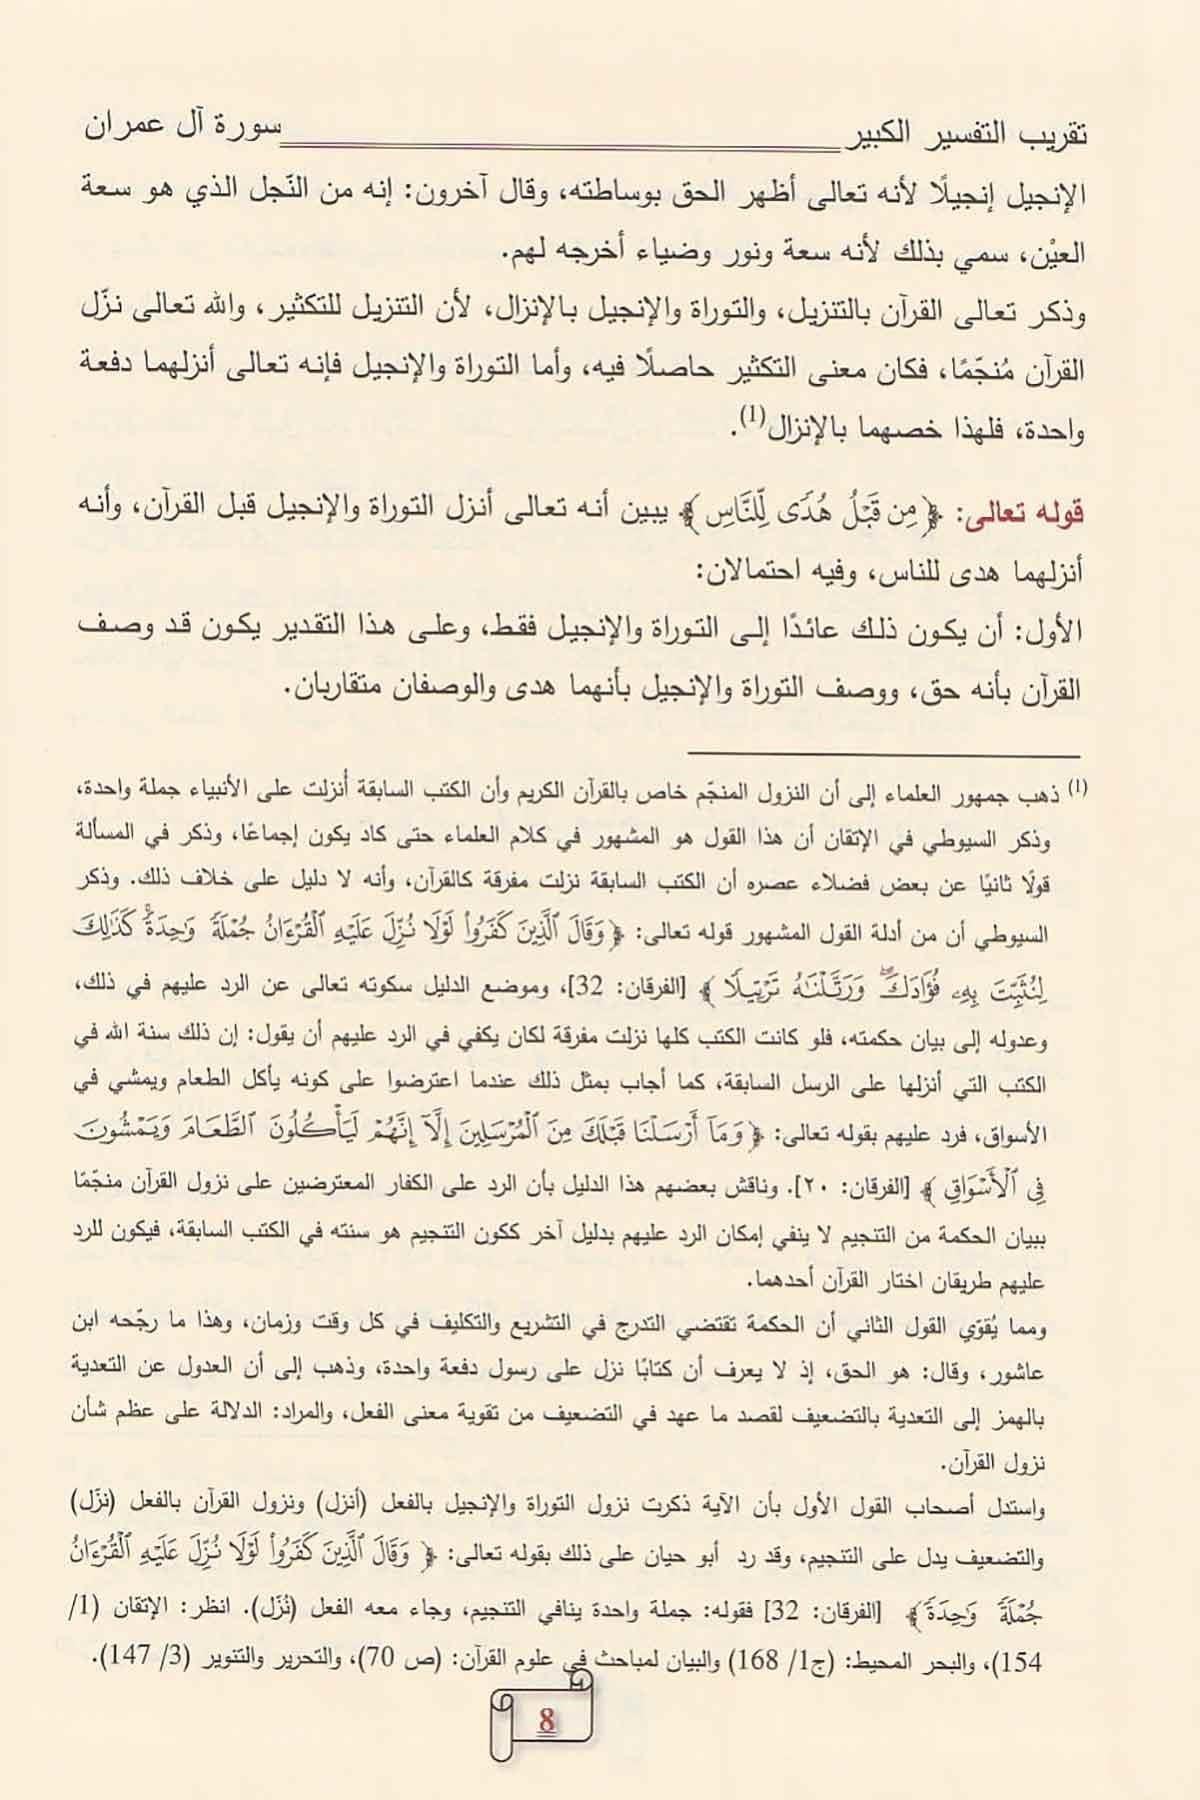 تقريب التفسير الكبير سورة آل عمران
الإنجيل إنجيلًا لأنه تعالى أظهر الحق بوساطته، وقال آخرون: إنه من النّجل الذي هو سعة
العيْن، سمي بذلك لأنه سعة ونور وضياء أخرجه لهم.
وذكر تعالى القرآن بالتنزيل، والتوراة والإنجيل بالإنزال، لأن التنزيل للتكثير، والله تعالى نزّل
القرآن مُنجّمًا، فكان معنى التكثير حاصلًا فيه، وأما التوراة والإنجيل فإنه تعالى أنزلهما دفعة
واحدة، فلهذا خصهما بالإنزال(1).
قوله تعالى: ﴿مِن قَبْلُ هُدًى لِّلنَّاسِ﴾ يبين أنه تعالى أنزل التوراة والإنجيل قبل القرآن، وأنه
أنزلهما هدى للناس، وفيه احتمالان:
الأول: أن يكون ذلك عائدًا إلى التوراة والإنجيل فقط، وعلى هذا التقدير يكون قد وصف
القرآن بأنه حق، ووصف التوراة والإنجيل بأنهما هدى والوصفان متقاربان.
(1) ذهب جمهور العلماء إلى أن النزول المنجّم خاص بالقرآن الكريم وأن الكتب السابقة أُنزلت على الأنبياء جملة واحدة،
وذكر السيوطي في الإتقان أن هذا القول هو المشهور في كلام العلماء حتى كاد يكون إجماعًا، وذكر في المسألة
قولًا ثانيًا عن بعض فضلاء عصره أن الكتب السابقة نزلت مفرقة كالقرآن، وأنه لا دليل على خلاف ذلك. وذكر
السيوطي أن من أدلة القول المشهور قوله تعالى: ﴿وَقَالَ ٱلَّذِينَ كَفَرُواْ لَوۡلَا نُزِّلَ عَلَيۡهِ ٱلۡقُرۡءَانُ جُمۡلَةٗ وَٰحِدَةٗۚ كَذَٰلِكَ
لِنُثَبِّتَ بِهِۦ فُؤَادَكَۖ وَرَتَّلۡنَٰهُ تَرۡتِيلٗا﴾ [الفرقان: 32]، وموضع الدليل سكوته تعالى عن الرد عليهم في ذلك،
وعدوله إلى بيان حكمته، فلو كانت الكتب كلها نزلت مفرقة لكان يكفي في الرد عليهم أن يقول: إن ذلك سنة الله في
الكتب التي أنزلها على الرسل السابقة، كما أجاب بمثل ذلك عندما اعترضوا على كونه يأكل الطعام ويمشي في
الأسواق، فرد عليهم بقوله تعالى: ﴿وَمَآ أَرۡسَلۡنَا قَبۡلَكَ مِنَ ٱلۡمُرۡسَلِينَ إِلَّآ إِنَّهُمۡ لَيَأۡكُلُونَ ٱلطَّعَامَ وَيَمۡشُونَ
فِي ٱلۡأَسۡوَاقِ﴾ [الفرقان: ٢٠]. وناقش بعضهم هذا الدليل بأن الرد على الكفار المعترضين على نزول القرآن منجّمًا
ببيان الحكمة من التنجيم لا ينفي إمكان الرد عليهم بدليل آخر ككون التنجيم هو سنته في الكتب السابقة، فيكون للرد
عليهم طريقان اختار القرآن أحدهما.
ومما يُقوّي القول الثاني أن الحكمة تقتضي التدرج في التشريع والتكليف في كل وقت وزمان، وهذا ما رجّحه ابن
عاشور، وقال: هو الحق، إذ لا يعرف أن كتابًا نزل على رسول دفعة واحدة، وذهب إلى أن العدول عن التعدية
بالهمز إلى التعدية بالتضعيف لقصد ما عهد في التضعيف من تقوية معنى الفعل، والمراد: الدلالة على عظم شأن
نزول القرآن.
واستدل أصحاب القول الأول بأن الآية ذكرت نزول التوراة والإنجيل بالفعل (أنزل) ونزول القرآن بالفعل (نزّل)
والتضعيف يدل على التنجيم، وقد رد أبو حيان على ذلك بقوله تعالى: ﴿وَقَالَ ٱلَّذِينَ كَفَرُواْ لَوۡلَا نُزِّلَ عَلَيۡهِ ٱلۡقُرۡءَانُ
جُمۡلَةٗ وَٰحِدَةٗ﴾ [الفرقان: 32] فقوله: جملة واحدة ينافي التنجيم، وجاء معه الفعل (نُزّل). انظر: الإتقان (1/
154)، والبحر المحيط: (ج1/ 168) والبيان لمباحث في علوم القرآن: (ص 70)، والتحرير والتنوير (3/ 147).
8